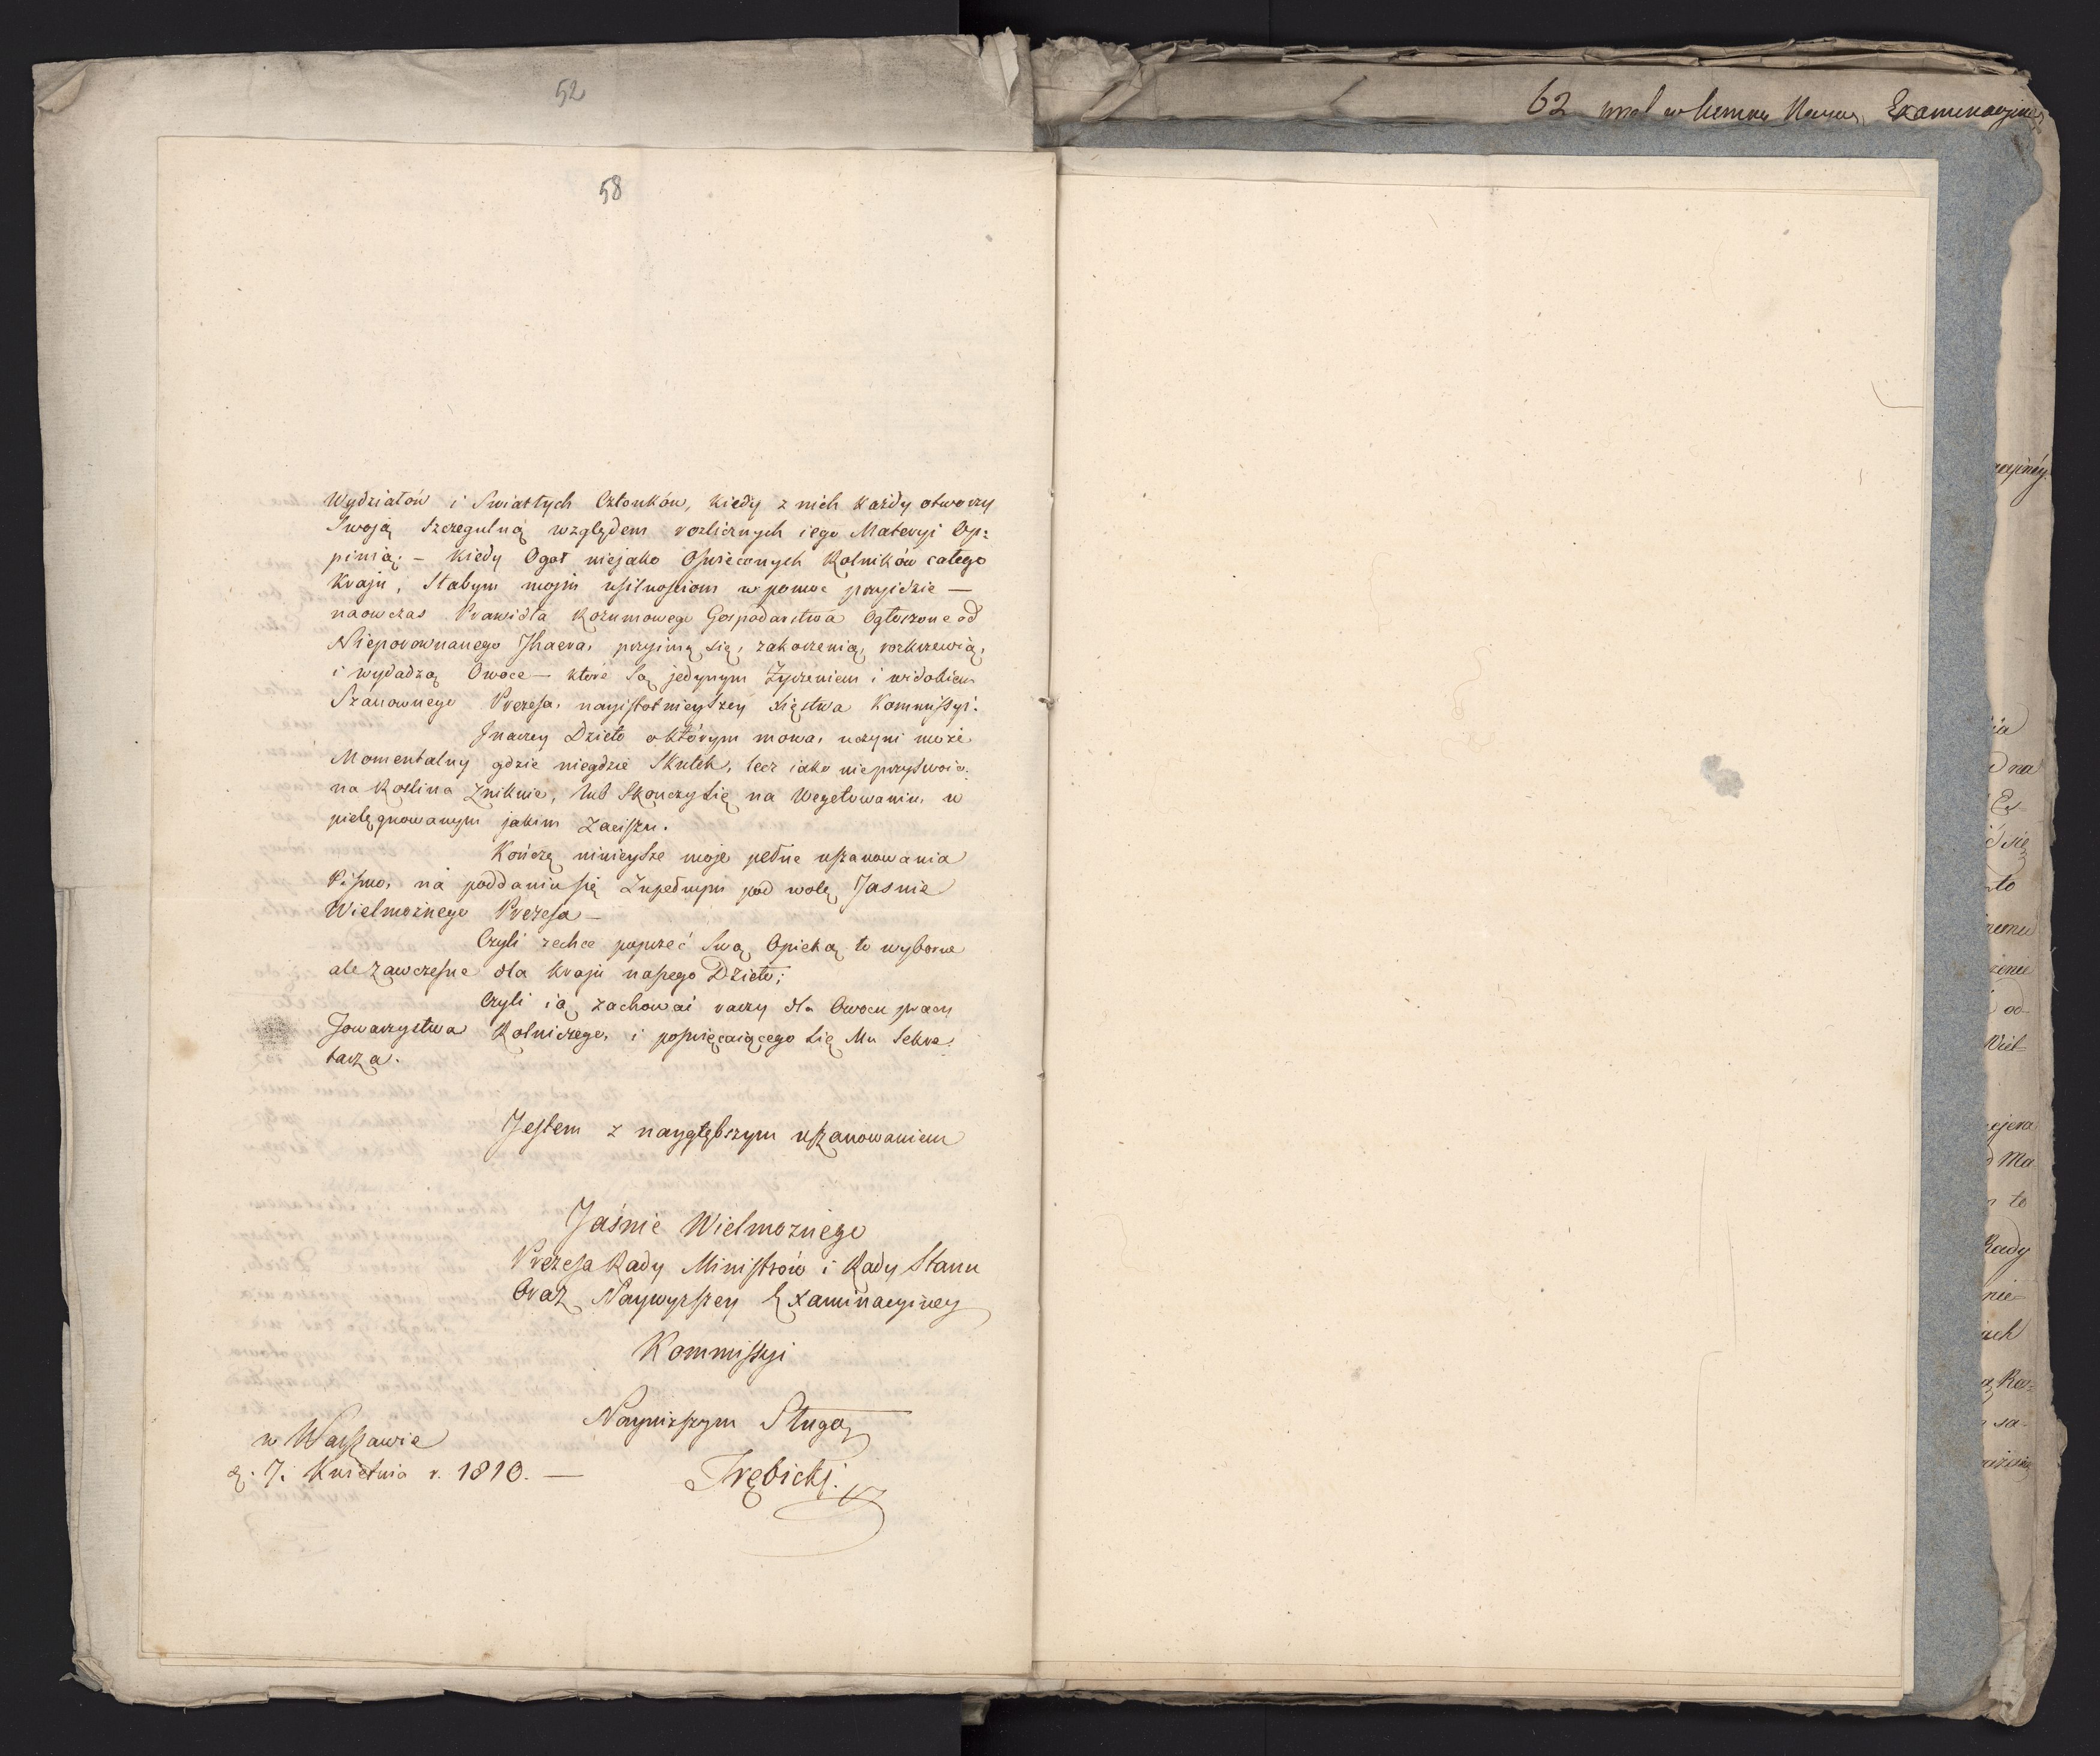 52
58
Wydziałów i Swiatłych Członków, kiedy z nich każdy otworzy
Swoją szczegulną względem rozlicznych iego Materyi Op=
pinią; – kiedy Ogół niejako Oświeconych Rolników całego
Kraju, Słabym moim usilnościom w pomoc przyidzie —
naowczas Prawidła Rozumowego Gospodarstwa Ogłoszone od
Nieporownanego Thaera, przyimą się, zakorzenią, rozkrzewią,
i wydadzą Owoce — które Są jedynym Życzeniem i widokiem
Szanownego Prezesa, nayistotnieyszey Xięstwa Kommissyi.
Inaczey Dzieło o którym mowa, uczyni może
Momentalny gdzie niegdzie Skutek, lecz iako nieprzyswoio=
na Roslina Zniknie, lub Skonczy się na Wegetowaniu, w
pielęgnowanym jakim Zaciszu.
Kończę ninieysze moje pełne uszanowania
Pismo, na poddaniu się Zupełnym pod wolę Jasnie
Wielmożnego Prezesa —
Czyli zechce poprzeć Swą Opieką to wyborne
ale Zawczesne dla kraju naszego Dzieło;
Czyli ią zachowai raczy dla Owocu pracy
Towarzystwa Rolniczego, i poswięcaiącego się Mu Sekre=
tarza.
Jestem z naygłębszym uszanowaniem
Jaśnie Wielmożnego
Prezesa Rady Ministrów i Rady Stanu
Oraz Naywyższey Examinacyiney
Kommissyi
Nayniższym Sługą
w Warszawie
d. 7. Kwietnia r. 1810. —
Trębicki.
62
Examinacyiney